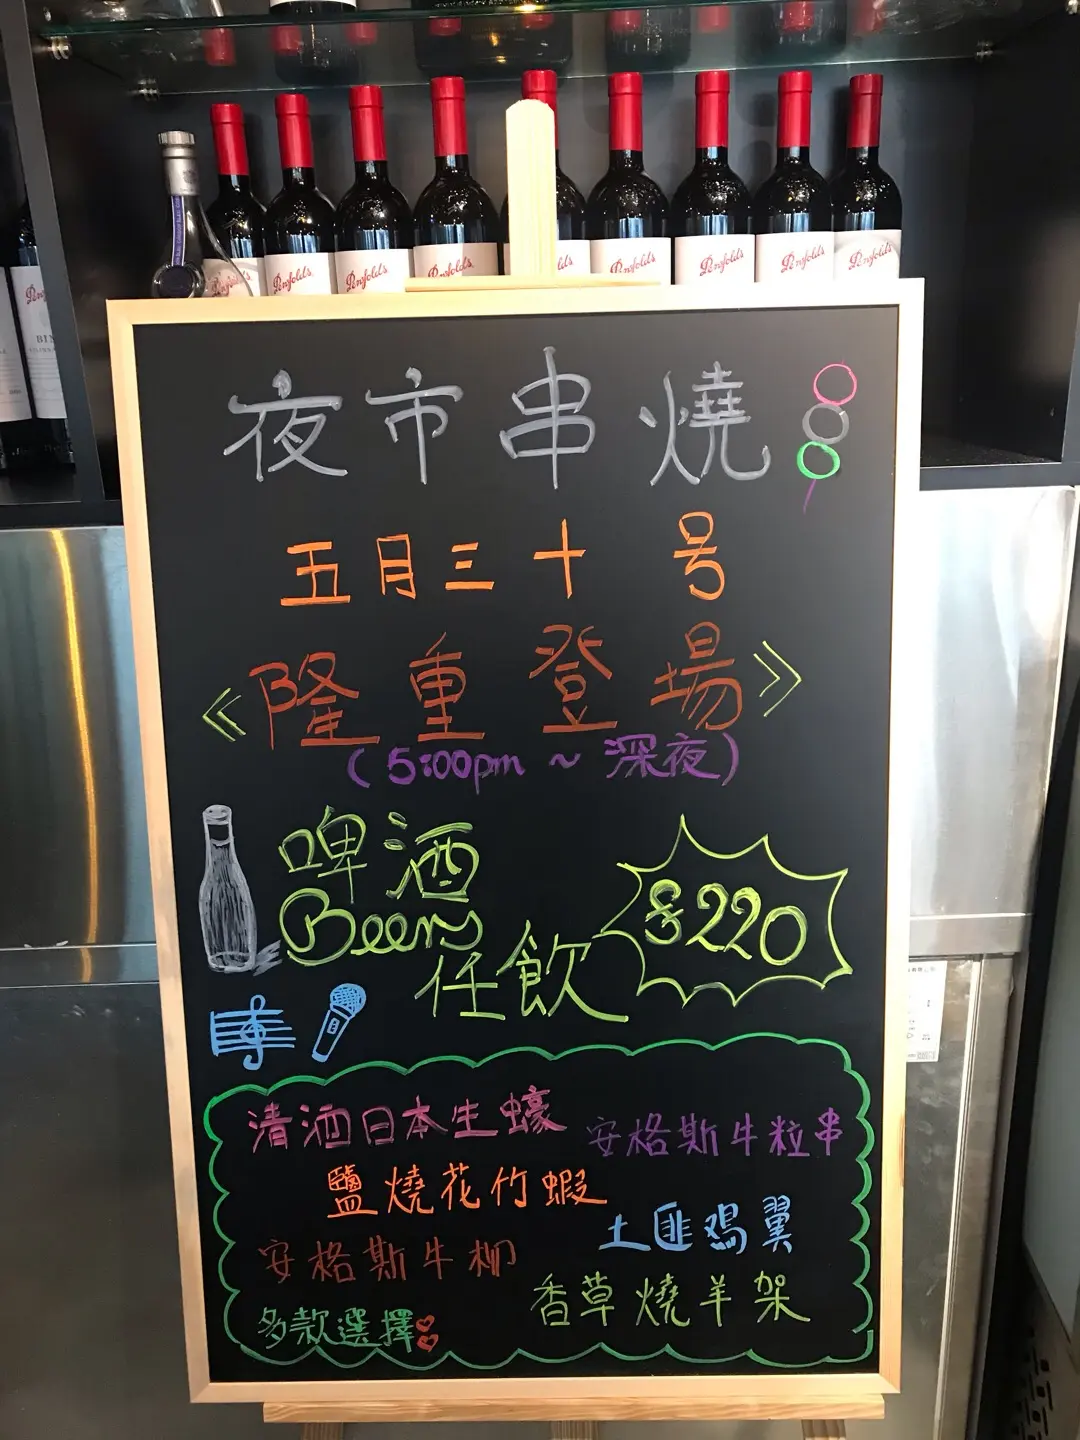 Penfolds Penfolds Penfolds Penfolds Penfolds Penfolds Penfolds Penfolds
夜市串燒
五月三十号
《隆重登場》
(5:00pm ~ 深夜)
啤酒
Beers
任飲
$220
清酒日本生蠔
安格斯牛粒串
鹽燒花竹蝦
土匪鸡翼
安格斯牛柳
香草燒羊架
多款選擇